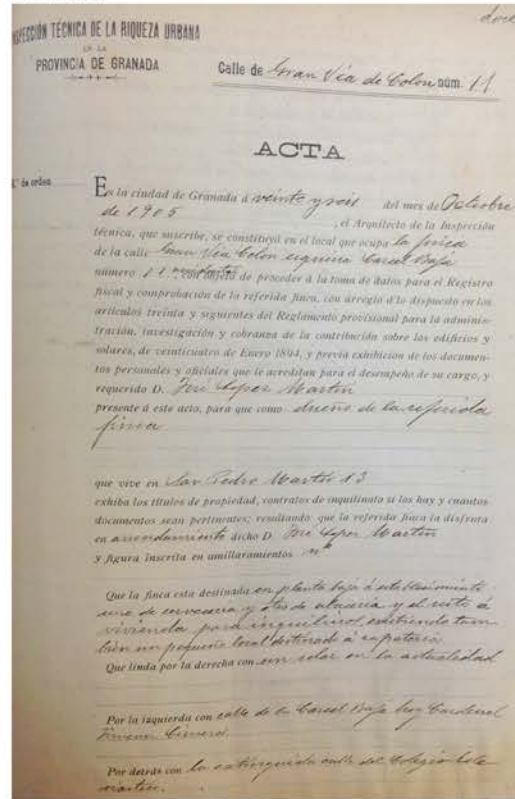 doce
INSPECCIÓN TÉCNICA DE LA RIQUEZA URBANA
EN LA
PROVINCIA DE GRANADA
Calle de Gran Via de Colon núm. 11
ACTA
N.º de orden
En la ciudad de Granada á veinte y seis del mes de Octubre
de 1905 , el Arquitecto de la Inspección
técnica, que suscribe, se constituyó en el local que ocupa la finca
de la calle Gran Via Colon esquina Carcel Baja
número 11 con objeto de proceder á la toma de datos para el Registro
fiscal y comprobación de la referida finca, con arreglo á lo dispuesto en los
artículos treinta y siguientes del Reglamento provisional para la adminis-
tración, investigación y cobranza de la contribución sobre los edificios y
solares, de veinticuatro de Enero 1894, y previa exhibición de los documen-
tos personales y oficiales que le acreditan para el desempeño de su cargo, y
requerido D. José Lopez Martin
presente á este acto, para que como dueño de la referida
finca
que vive en San Pedro Martir 13
exhiba los títulos de propiedad, contratos de inquilinato si los hay y cuantos
documentos sean pertinentes; resultando: que la referida finca la disfruta
en arrendamiento dicho D José Lopez Martin
y figura inscrita en amillaramientos nº
Que la finca esta destinada en planta baja á establecimiento
uno de cerveceria y otro de y el resto á
vivienda para inquilinos existiendo tam-
bien un pequeño local destinado á zapateria
Que linda por la derecha con un solar en la actualidad
Por la izquierda con calle de la Carcel Baja hoy Cardenal
Jimenez Cisneros.
Por detrás con la extinguida calle del Colegio Ecle
siastico.